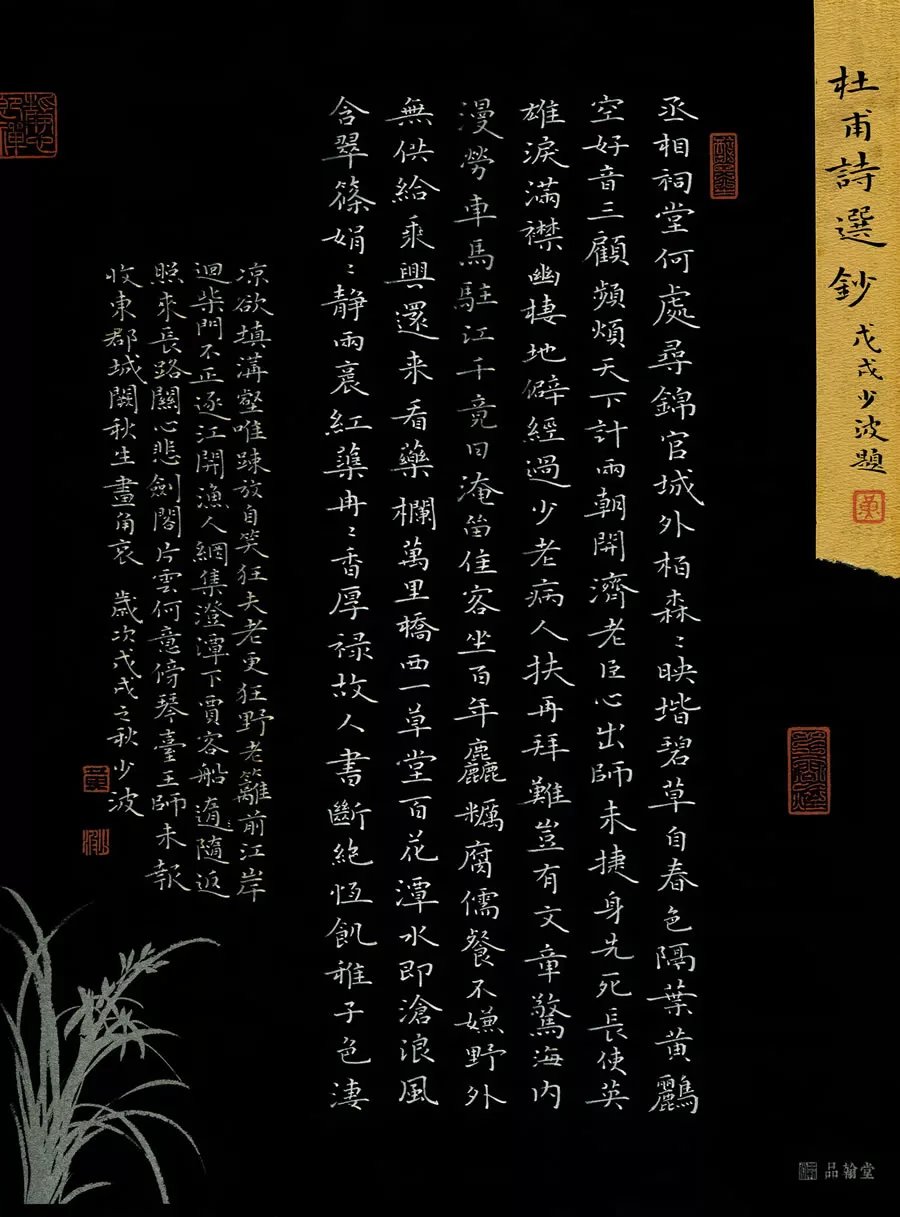 杜甫詩選鈔 戊戌少波題
黃
丞相祠堂何處尋錦官城外栢森〻映堦碧草自春色隔葉黃鸝
空好音三顧頻煩天下計兩朝開濟老臣心出師未捷身先死長使英
雄淚滿襟幽棲地僻經過少老病人扶再拜難豈有文章驚海内
漫勞車馬駐江干竟日淹留佳客坐百年麤糲腐儒餐不嫌野外
無供給乘興還来看藥欄萬里橋西一草堂百花潭水即滄浪風
含翠篠娟〻静雨裛紅蕖冉〻香厚禄故人書斷絶恆飢稚子色淒
凉欲填溝壑唯踈放自笑狂夫老更狂野老籬前江岸
迴柴門不正逐江開漁人網集澄潭下賈客船隨返
照来長路關心悲劍閣片雲何意傍琴臺王師未報
收東郡城闕秋生畫角哀 歲次戊戌之秋少波
黃
品翰堂